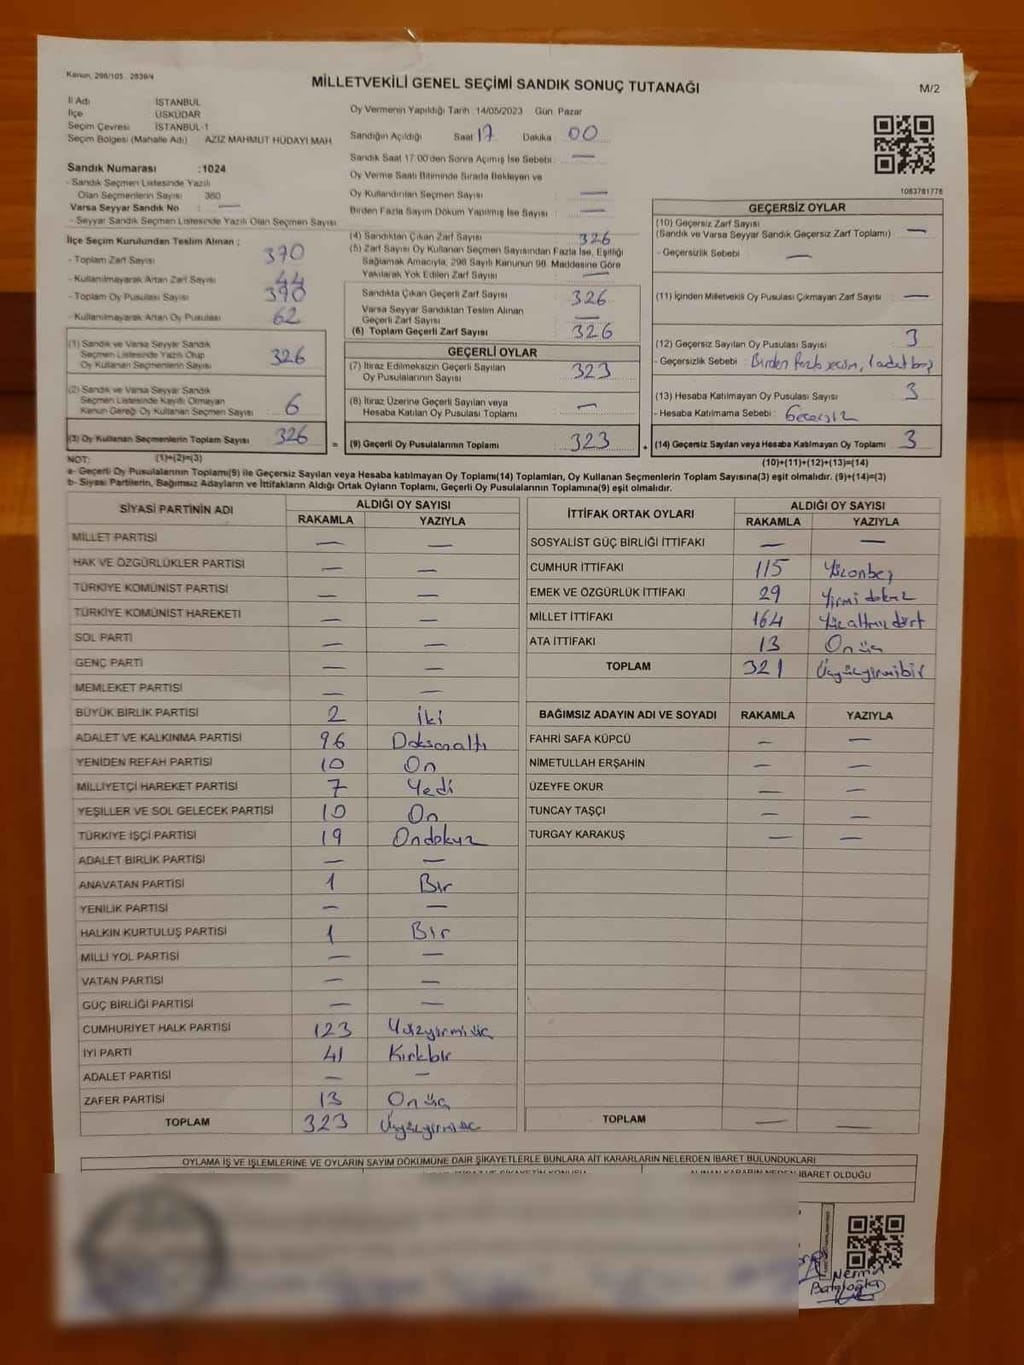 Kanun, 298/105 - 2839/4
MİLLETVEKİLİ GENEL SEÇİMİ SANDIK SONUÇ TUTANAĞI
M/2
İl Adı İSTANBUL
İlçe ÜSKÜDAR
Seçim Çevresi İSTANBUL-1
Seçim Bölgesi (Mahalle Adı) AZİZ MAHMUT HÜDAYİ MAH
Sandık Numarası :1024
- Sandık Seçmen Listesinde Yazılı
Olan Seçmenlerin Sayısı 360
Varsa Seyyar Sandık No —
- Seyyar Sandık Seçmen Listesinde Yazılı Olan Seçmen Sayısı
Oy Vermenin Yapıldığı Tarih 14/05/2023 Gün Pazar
Sandığın Açıldığı Saat 17 Dakika 00
Sandık Saat 17:00'den Sonra Açılmış İse Sebebi —
Oy Verme Saati Bitiminde Sırada Bekleyen ve
Oy Kullandırılan Seçmen Sayısı —
Birden Fazla Sayım Döküm Yapılmış İse Sayısı —
1083781778
İlçe Seçim Kurulundan Teslim Alınan ;
- Toplam Zarf Sayısı 370
- Kullanılmayarak Artan Zarf Sayısı 44
- Toplam Oy Pusulası Sayısı 390
- Kullanılmayarak Artan Oy Pusulası 62
(1) Sandık ve Varsa Seyyar Sandık
Seçmen Listesinde Yazılı Olup
Oy Kullanan Seçmenlerin Sayısı 326
(2) Sandık ve Varsa Seyyar Sandık
Seçmen Listesinde Kayıtlı Olmayan
Kanun Gereği Oy Kullanan Seçmen Sayısı 6
(3) Oy Kullanan Seçmenlerin Toplam Sayısı 326
(1)+(2)=(3)
(4) Sandıktan Çıkan Zarf Sayısı 326
(5) Zarf Sayısı Oy Kullanan Seçmen Sayısından Fazla İse, Eşitliği
Sağlamak Amacıyla, 298 Sayılı Kanunun 98. Maddesine Göre
Yakılarak Yok Edilen Zarf Sayısı —
Sandıkta Çıkan Geçerli Zarf Sayısı 326
Varsa Seyyar Sandıktan Teslim Alınan
Geçerli Zarf Sayısı —
(6) Toplam Geçerli Zarf Sayısı 326
GEÇERLİ OYLAR
(7) İtiraz Edilmeksizin Geçerli Sayılan
Oy Pusulalarının Sayısı 323
(8) İtiraz Üzerine Geçerli Sayılan veya
Hesaba Katılan Oy Pusulası Toplamı —
= (9) Geçerli Oy Pusulalarının Toplamı 323
GEÇERSİZ OYLAR
(10) Geçersiz Zarf Sayısı
(Sandık ve Varsa Seyyar Sandık Geçersiz Zarf Toplamı) —
- Geçersizlik Sebebi —
(11) İçinden Milletvekili Oy Pusulası Çıkmayan Zarf Sayısı —
(12) Geçersiz Sayılan Oy Pusulası Sayısı 3
- Geçersizlik Sebebi : Birden fazla seçim, 1 adet boş
(13) Hesaba Katılmayan Oy Pusulası Sayısı 3
- Hesaba Katılmama Sebebi : Geçersiz
+ (14) Geçersiz Sayılan veya Hesaba Katılmayan Oy Toplamı 3
(10)+(11)+(12)+(13)=(14)
NOT:
a- Geçerli Oy Pusulalarının Toplamı(9) ile Geçersiz Sayılan veya Hesaba katılmayan Oy Toplamı(14) Toplamları, Oy Kullanan Seçmenlerin Toplam Sayısına(3) eşit olmalıdır. (9)+(14)=(3)
b- Siyasi Partilerin, Bağımsız Adayların ve İttifakların Aldığı Ortak Oyların Toplamı, Geçerli Oy Pusulalarının Toplamına(9) eşit olmalıdır.
SİYASİ PARTİNİN ADI ALDIĞI OY SAYISI
RAKAMLA YAZIYLA
MİLLET PARTİSİ — —
HAK VE ÖZGÜRLÜKLER PARTİSİ — —
TÜRKİYE KOMÜNİST PARTİSİ — —
TÜRKİYE KOMÜNİST HAREKETİ — —
SOL PARTİ — —
GENÇ PARTİ — —
MEMLEKET PARTİSİ — —
BÜYÜK BİRLİK PARTİSİ 2 iki
ADALET VE KALKINMA PARTİSİ 96 Doksanaltı
YENİDEN REFAH PARTİSİ 10 On
MİLLİYETÇİ HAREKET PARTİSİ 7 Yedi
YEŞİLLER VE SOL GELECEK PARTİSİ 10 On
TÜRKİYE İŞÇİ PARTİSİ 19 Ondokuz
ADALET BİRLİK PARTİSİ — —
ANAVATAN PARTİSİ 1 Bir
YENİLİK PARTİSİ — —
HALKIN KURTULUŞ PARTİSİ 1 Bir
MİLLİ YOL PARTİSİ — —
VATAN PARTİSİ — —
GÜÇ BİRLİĞİ PARTİSİ — —
CUMHURİYET HALK PARTİSİ 123 Yüzyirmiüç
İYİ PARTİ 41 Kırkbir
ADALET PARTİSİ — —
ZAFER PARTİSİ 13 Onüç
TOPLAM 323 Üçyüzyirmiüç
İTTİFAK ORTAK OYLARI ALDIĞI OY SAYISI
RAKAMLA YAZIYLA
SOSYALİST GÜÇ BİRLİĞİ İTTİFAKI — —
CUMHUR İTTİFAKI 115 Yüzonbeş
EMEK VE ÖZGÜRLÜK İTTİFAKI 29 Yirmi dokuz
MİLLET İTTİFAKI 164 Yüzaltmışdört
ATA İTTİFAKI 13 Onüç
TOPLAM 321 Üçyüzyirmibir
BAĞIMSIZ ADAYIN ADI VE SOYADI RAKAMLA YAZIYLA
FAHRİ SAFA KÜPCÜ — —
NİMETULLAH ERŞAHİN — —
ÜZEYFE OKUR — —
TUNCAY TAŞÇI — —
TURGAY KARAKUŞ — —
TOPLAM — —
OYLAMA İŞ VE İŞLEMLERİNE VE OYLARIN SAYIM DÖKÜMÜNE DAİR ŞİKAYETLERLE BUNLARA AİT KARARLARIN NELERDEN İBARET BULUNDUKLARI
ALINAN KARARIN NEDEN İBARET OLDUĞU